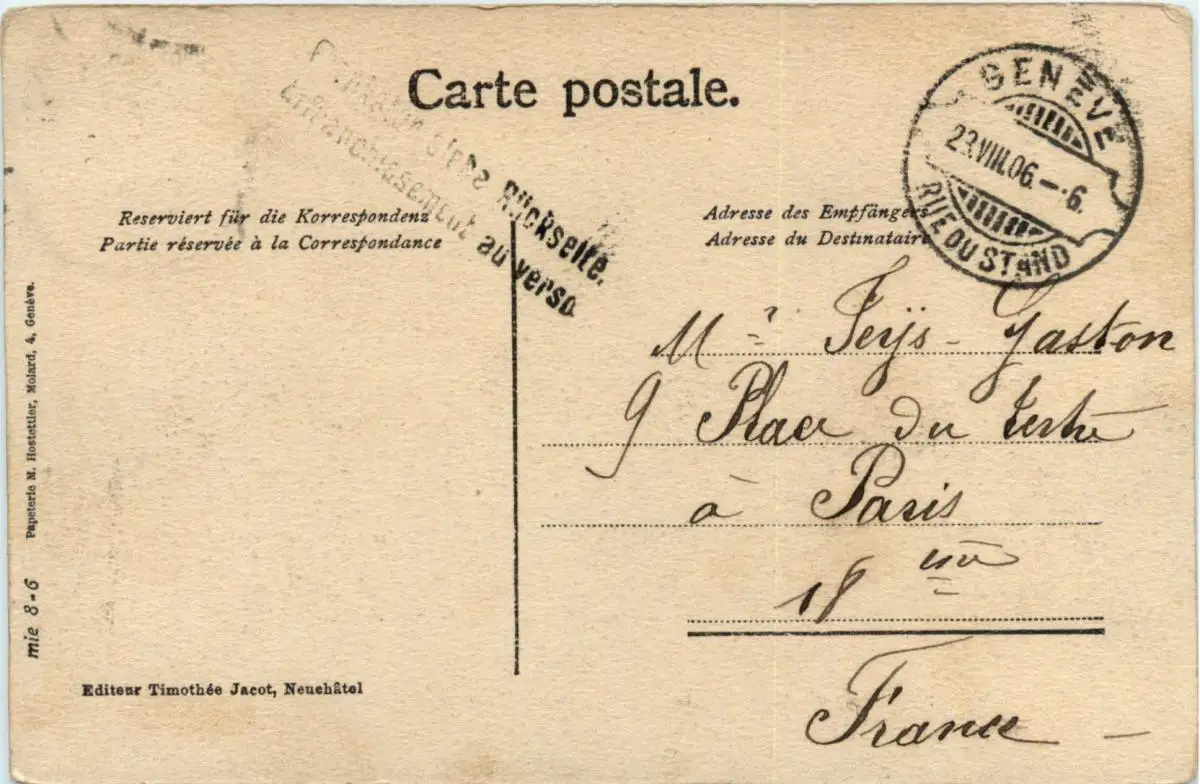 Carte postale.
GENÈVE
23.VIII.06.–.6.
RUE DU STAND
Rückseite.
Affranchissement au verso.
Reserviert für die Korrespondenz
Partie réservée à la Correspondance
Adresse des Empfängers
Adresse du Destinatair
Mr Gaston
9 Place du Tertre
à Paris
18 ème
France
Papeterie M. Hostettler, Molard, 4, Genève.
mie 8-6
Editeur Timothée Jacot, Neuchâtel